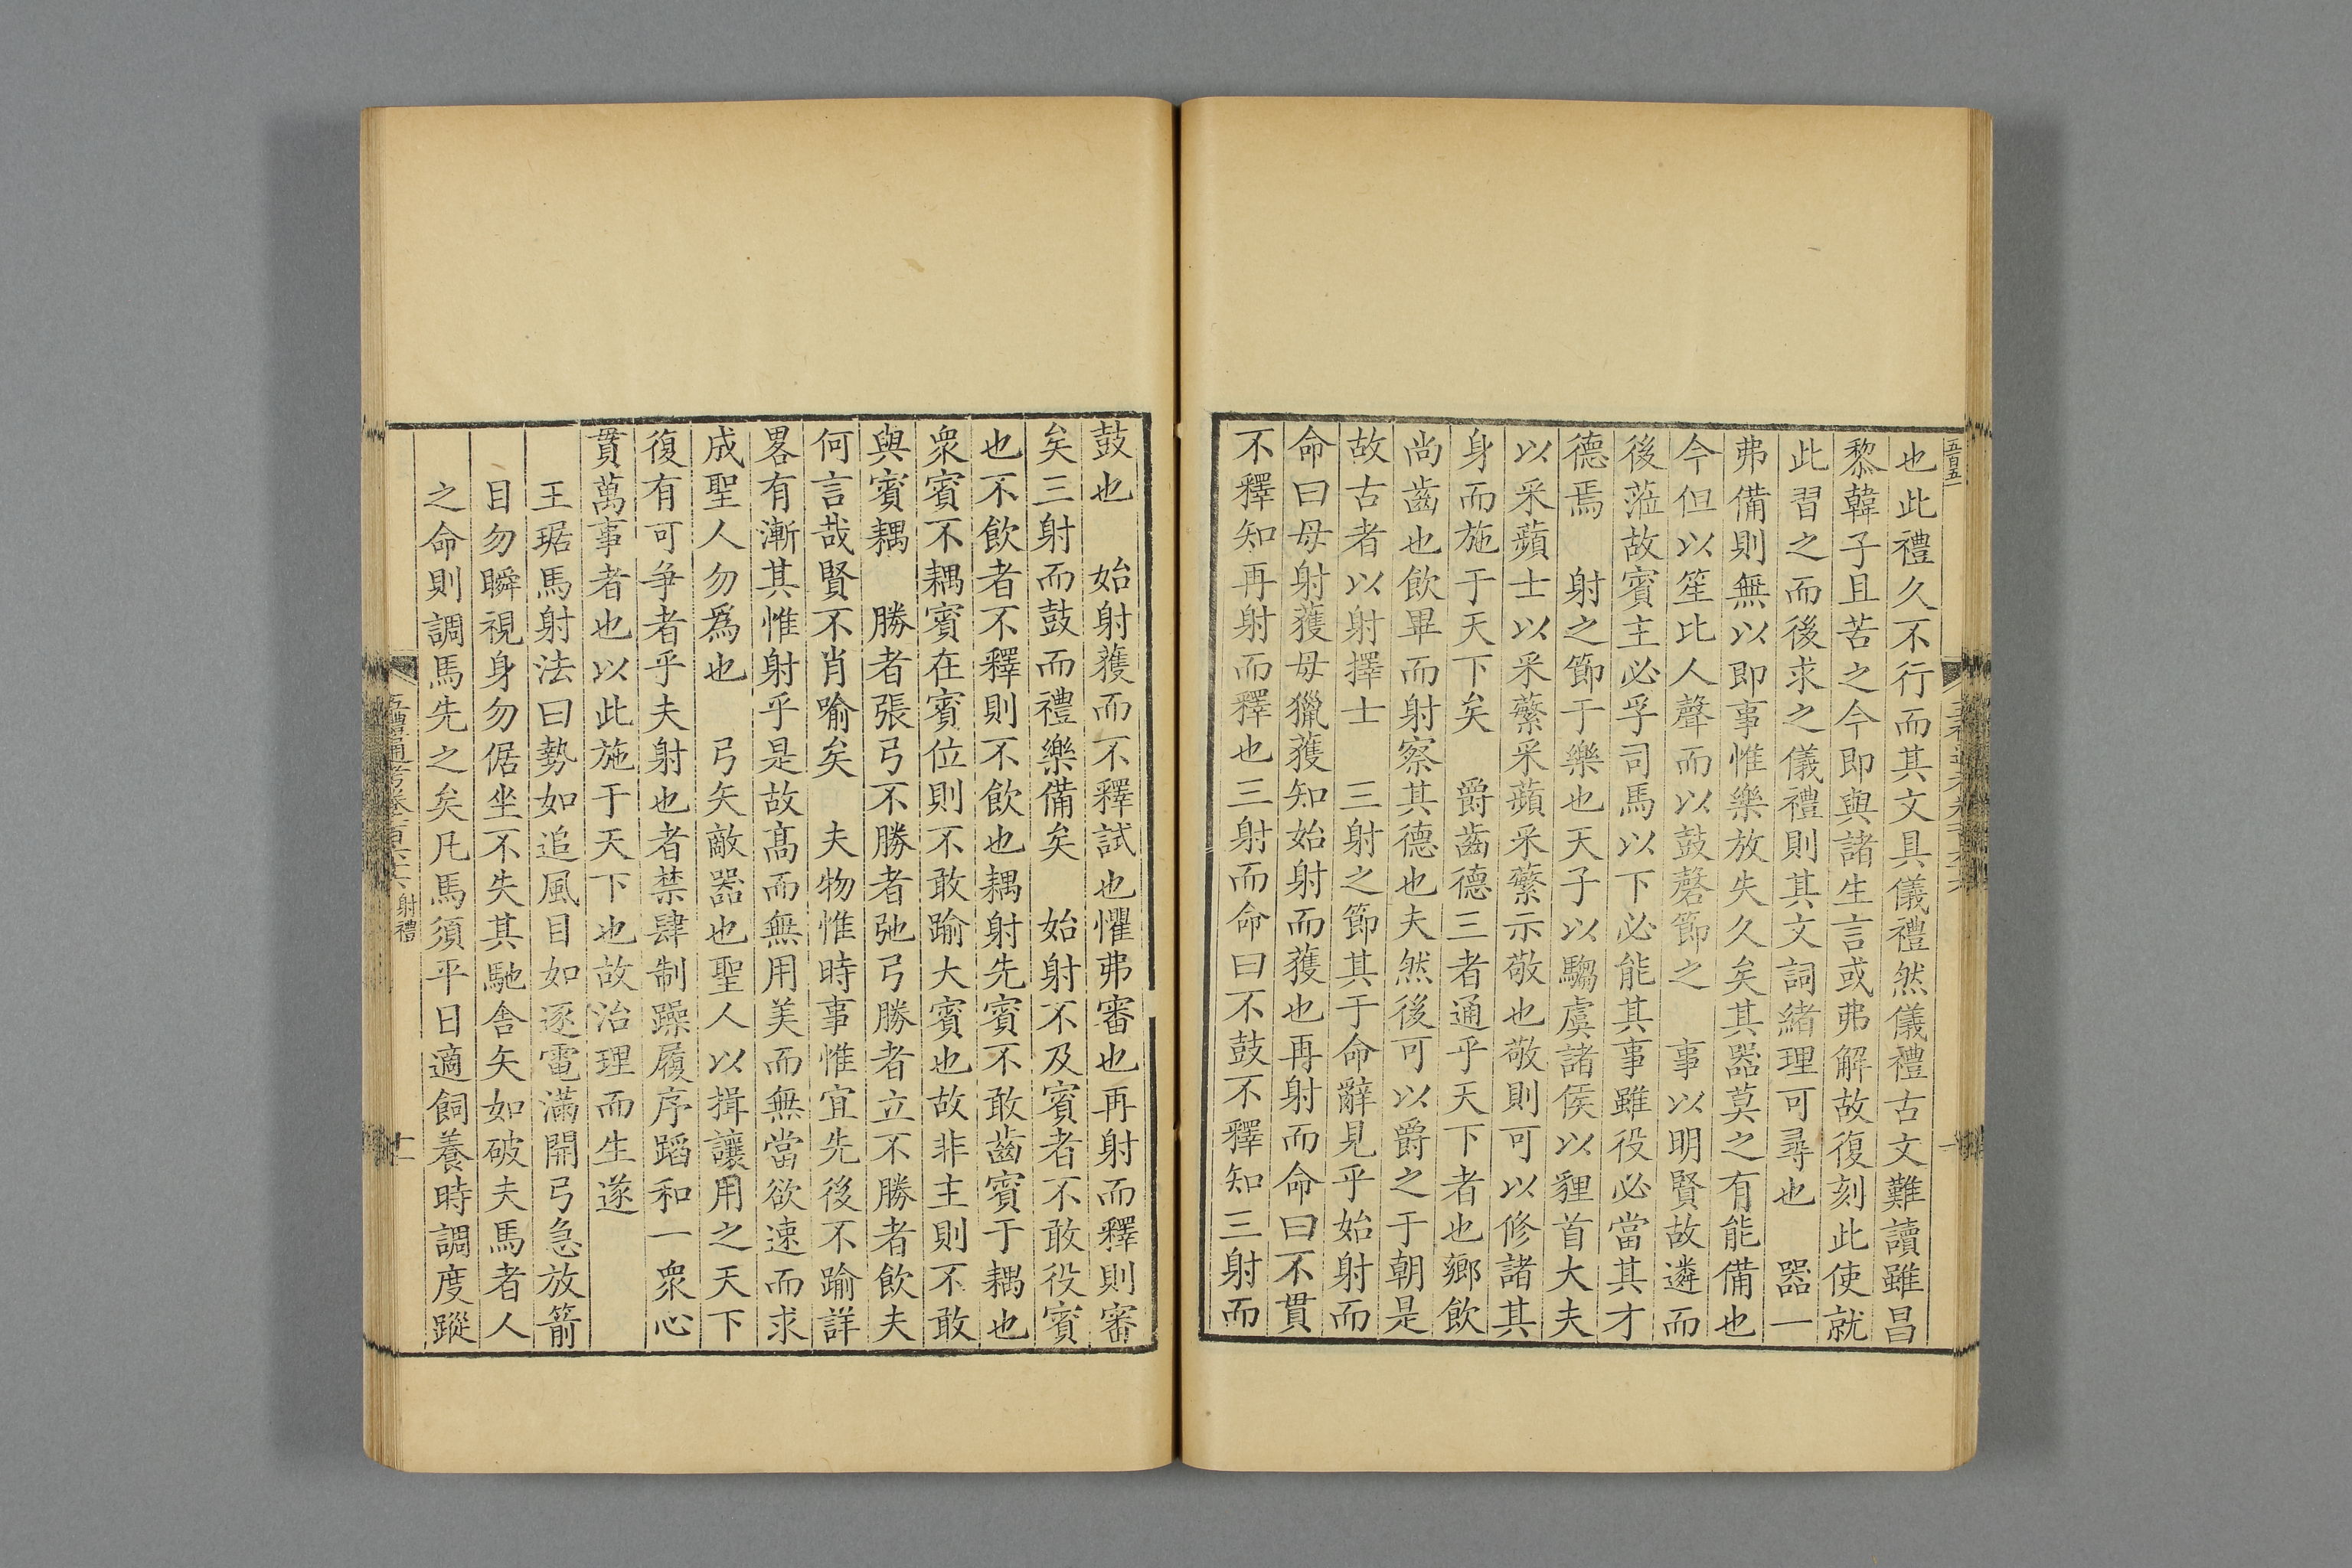 五百五
也此禮久不行而其文具儀禮然儀禮古文難讀雖昌
黎韓子且苦之今即與諸生言或弗解故復刻此使就
此習之而後求之儀禮則其文詞緒理可尋也　器一
弗備則無以即事惟樂放失久矣其器莫之有能備也
今但以笙比人聲而以鼓磬節之　事以明賢故遴而
後蒞故賓主必孚司馬以下必能其事雖役必當其才
德焉　射之節于樂也天子以騶虞諸侯以貍首大夫
以采蘋士以采蘩采蘋采蘩示敬也敬則可以修諸其
身而施于天下矣　爵齒德三者通乎天下者也鄉飲
尚齒也飲畢而射察其德也夫然後可以爵之于朝是
故古者以射擇士　三射之節其于命辭見乎始射而
命曰毋射獲毋獵獲知始射而獲也再射而命曰不貫
不釋知再射而釋也三射而命曰不鼓不釋知三射而
鼓也　始射獲而不釋試也懼弗審也再射而釋則審
矣三射而鼓而禮樂備矣　始射不及賓者不敢役賓
也不飲者不釋則不飲也耦射先賓不敢齒賓于耦也
衆賓不耦賓在賓位則不敢踰大賓也故非主則不敢
與賓耦　勝者張弓不勝者弛弓勝者立不勝者飲夫
何言哉賢不肖喻矣　夫物惟時事惟宜先後不踰詳
畧有漸其惟射乎是故高而無用美而無當欲速而求
成聖人勿爲也　弓矢敵器也聖人以揖讓用之天下
復有可爭者乎夫射也者禁肆制躁履序蹈和一衆心
貫萬事者也以此施于天下也故治理而生遂
王琚馬射法曰勢如追風目如逐電滿開弓急放箭
目勿瞬視身勿倨坐不失其馳舍矢如破夫馬者人
之命則調馬先之矣凡馬須平日適飼養時調度蹤
五禮通考卷一百六十六　射禮
十一